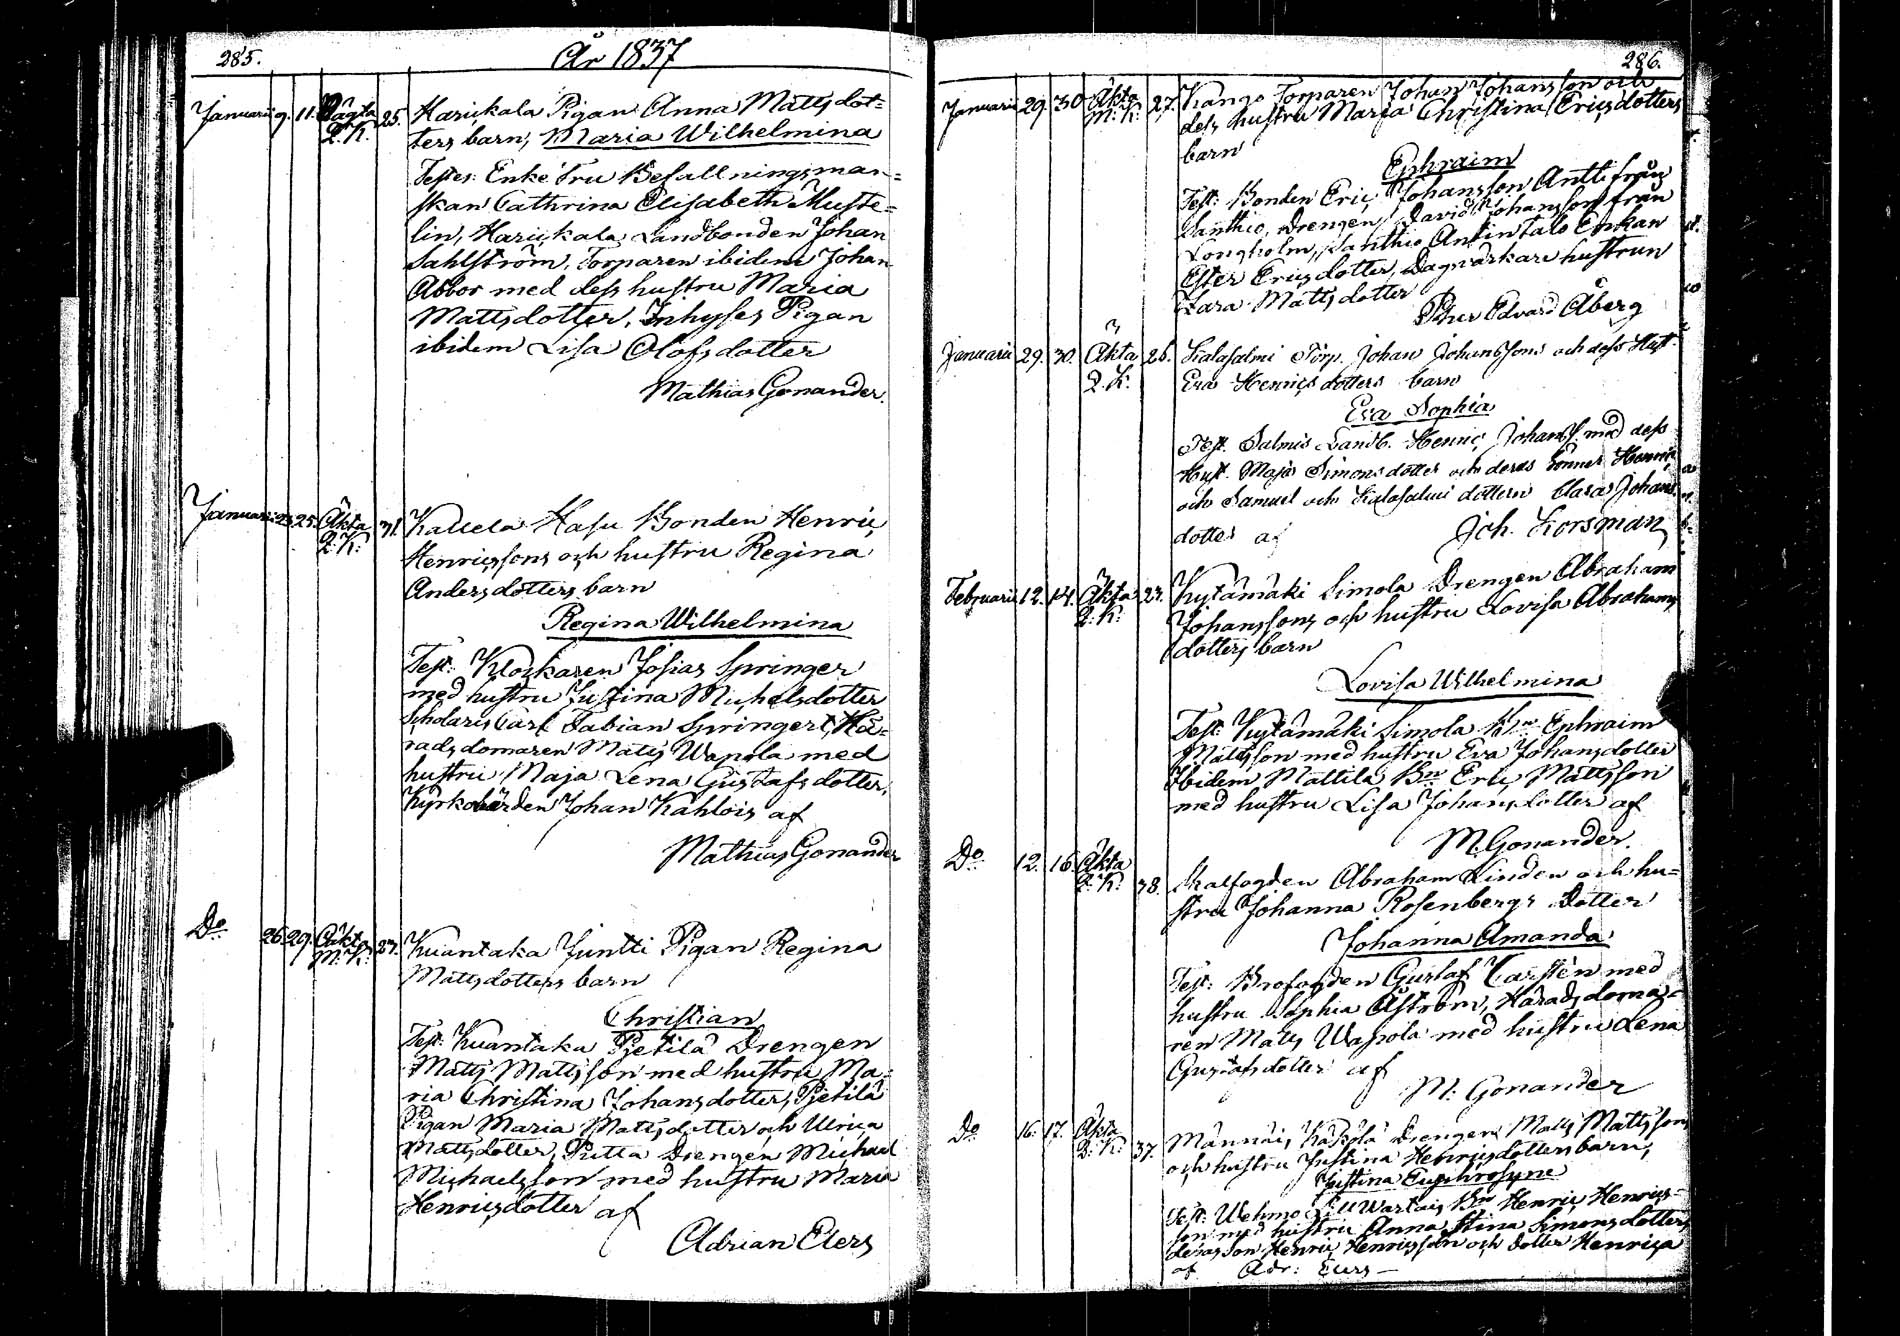 285.
År 1837
Januarii 9. 11. Oägta 25. Harickala Pigan Anna Matts dot=
Q: K. ters barn, Maria Wilhelmina
Testes: Enke Fru Befallningsman=
skan Cathrina Elisabeth Muste=
lin, Harickala Landbonden Johan
Sahlström, Torparen ibidem Johan
Abbor med dess hustru Maria
Mattsdotter, Inhyses Pigan
ibidem Lisa Olofsdotter
Mathias Gonander.
Januarii 23 25 Äkta 31. Kallela Hasu Bonden Henric
Q: K: Henricssons och hustru Regina
Andersdotters barn
Regina Wilhelmina
Test: Klockaren Josias Springer
med hustru Justina Michelsdotter
Scholaris Carl Fabian Springer, Hä=
radsdomaren Matts Wapola med
hustru Maja Lena Gustafsdotter,
Kyrkovärden Johan Kahlois af
Mathias Gonander
Do 26. 29. Oäkta 27. Kuantaka Juntti Pigan Regina
M: K: Mattsdotters barn
Christian
Test: Kuantaka Pjetilä Drengen
Matts Mattsson med hustru Ma=
ria Christina Johansdotter, Pjetilä
Pigan Maria Mattsdotter och Ulrica
Mattsdotter, Putta Drengen Michael
Michaelsson med hustru Maria
Henricsdotter af
Adrian Elers
286.
Januarii 29. 30. Äkta 27. Kango Torparen Johan Johansson och
M: K: dess hustru Maria Christina Ericsdotters
barn
Ephraim
Test: Bonden Eric Johansson Antti från
Santhio, Drengen David Johansson från
Longholm, Santhio Antintalo Enkan
Ester Ericsdotter, Dagsvärkare hustrun
Zara Mattsdotter
Pehr Edvard Åberg
Januarii 29. 30. Äkta 26. Kalasalmi Torp. Johan Johanssons och dess Hust
Q. K: Eva Henricsdotters barn
Eva Sophia
Test. Salmis Landb. Henric Johanss. med dess
Hust. Maja Simonsdotter och deras söner Henric
och Samuel och Kalasalmi dottern Clara Johans
dotter af Joh. Korsman
Februarii 12. 14. Äkta 23. Kytämäki Simola Drengen Abraham
Q: K: Johanssons och hustru Lovisa Abrahams
dotters barn
Lovisa Wilhelmina
Test: Kytämäki Simola Bn Ephraim
Mattsson med hustru Eva Johansdotter
Ibidem Mattila Bn Eric Mattsson
med hustru Lisa Johansdotter af
M. Gonander.
Do 12. 16. Äkta
Q: K: 38. Skalfogden Abraham Linden och hu=
stru Johanna Rosenbergs Dotter
Johanna Amanda
Test: Brofogden Gustaf Carstén med
hustru Sophia Åström, Häradsdoma=
ren Matts Wapola med hustru Lena
Gustafsdotter af
M: Gonander
Do 16. 17. Äkta Männäis Drengen Matts Mattsson
Q: K: 37. och hustru Justina Henricsdotters barn,
Justina Euphrosyne
Test: Wehmo Bn Henric Henrics=
son med hustru Anna Stina Simonsdotter
deras son Henric Henricsson och dotter Henrica
af Adr: Elers